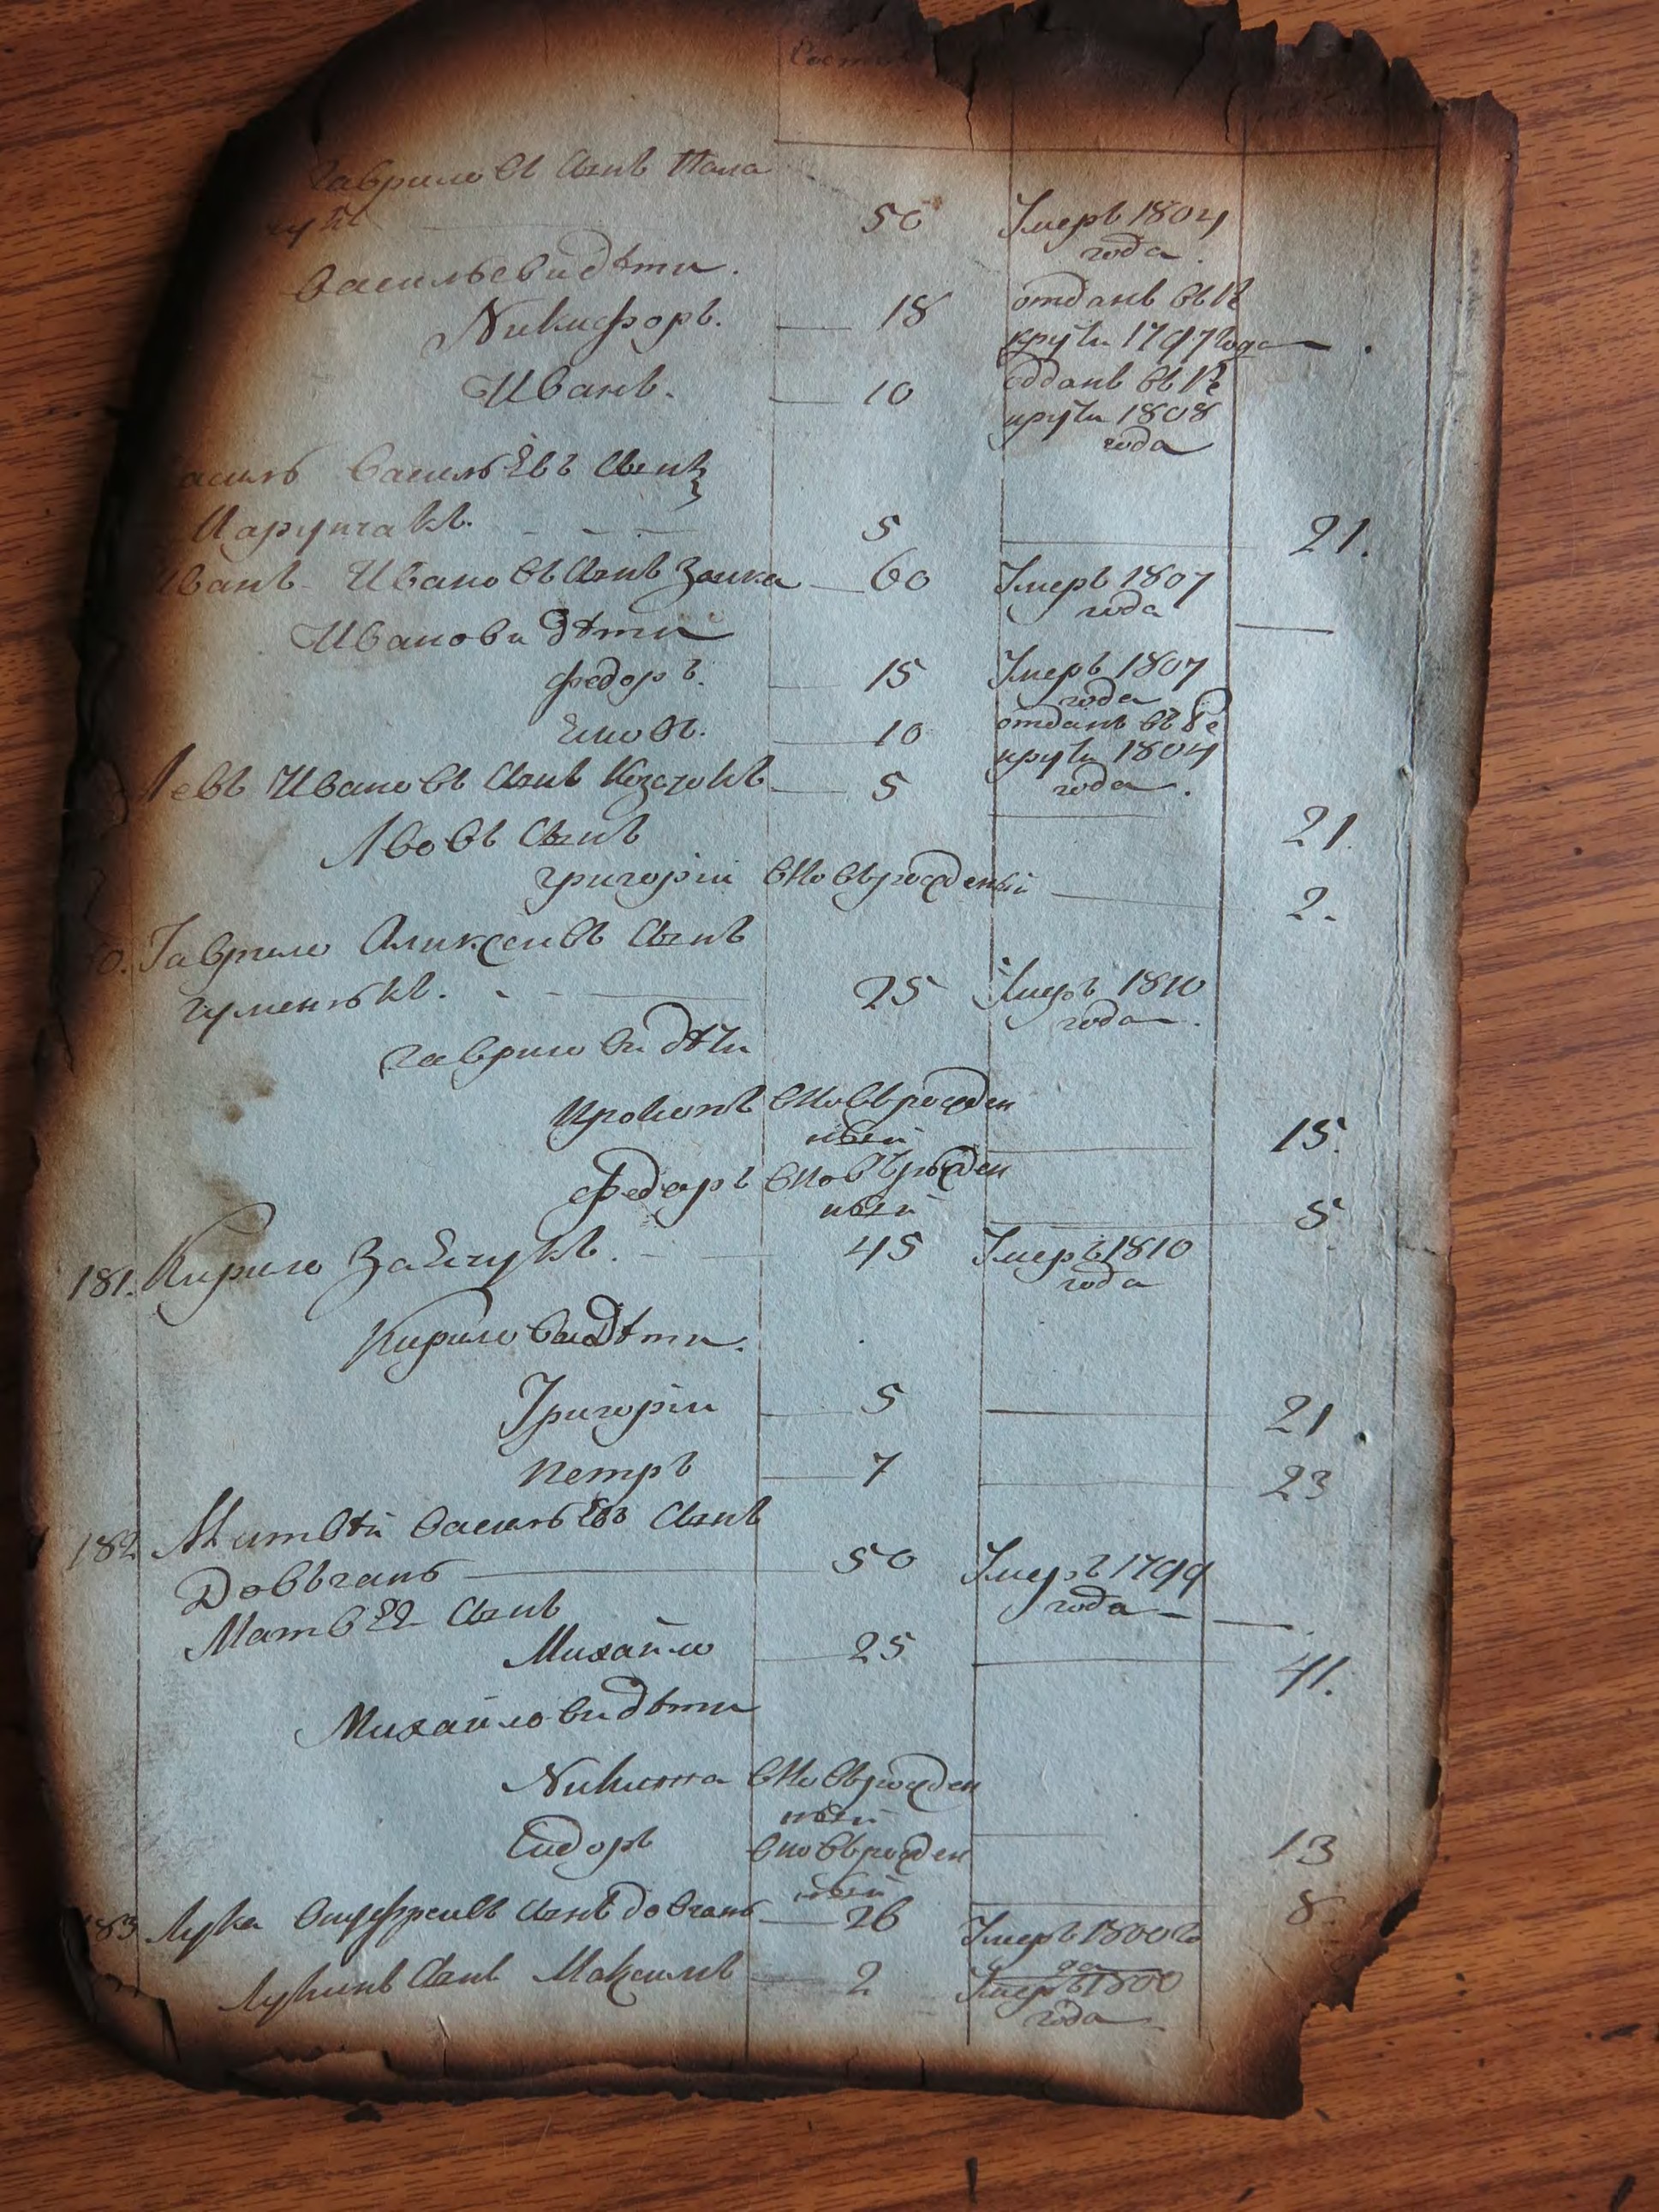 Гавриловъ сынъ Пала
50 Умеръ 1804
года.
Васильеви дѣти.
Никифоръ. 18 отданъ въ Ре
круты 1797 года
Иванъ. 10 одданъ въ Ре
круты 1808
года
Василь Васильевъ сынъ
5 21.
Иванъ Ивановъ сынъ Заика 60 Умеръ 1807
года
Иванови дѣти
Федоръ. 15 Умеръ 1807
года
10 отданъ въ Ре
круты 1804
года.
Левъ Ивановъ сынъ Козачокъ 5 21.
Львовъ сынъ
Григорій вновьрожденый 2.
0. Гаврило Аликсеивъ сынъ
Гуменюкъ. 25 Умеръ 1810
года.
Гаврилови дѣти
Прокопъ вновьрожден
ный 15.
Федоръ вновьрожден
ный 5
181. Кирило Заечукъ. 45 Умеръ 1810
года
Кирилови дѣти.
Григорій 5 21
Петръ 7 23
182. Матвѣй Васильевъ сынъ
Довъгань 50 Умеръ 1799
года
сынъ
Михайло 25 41.
Михайлови дѣти
Никита вновьрожден
ный 13
Сидоръ вновьрожден
ный 8.
183 Лука Онуфреивъ сынъ Довгань 26 Умеръ 1800 го
да
Лукинъ сынъ Максимъ 2 Умеръ 1800
года